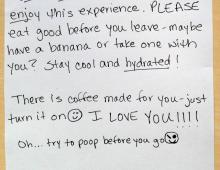 enjoy this experience. PLEASE
eat good before you leave - maybe
have a banana or take one with
you? Stay cool and hydrated!
There is coffee made for you - just
turn it on☺ I LOVE YOU!!!!
Oh... try to poop before you go